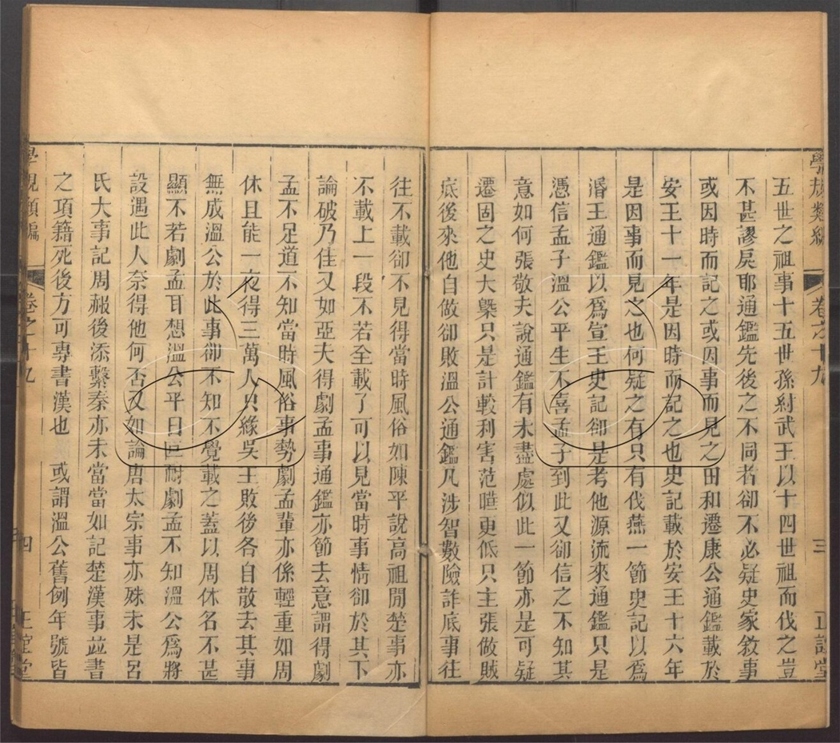 學規類編 卷之十九 三 正誼堂
五世之祖事十五世孫紂武王以十四世祖而伐之豈
不甚謬戾耶通鑑先後之不同者卻不必疑史家敘事
或因時而記之或因事而見之田和遷康公通鑑載於
安王十一年是因時而記之也史記載於安王十六年
是因事而見之也何疑之有只有伐燕一節史記以爲
湣王通鑑以爲宣王史記卻是考他源流來通鑑只是
憑信孟子溫公平生不喜孟子到此又卻信之不知其
意如何張敬夫說通鑑有未盡處似此一節亦是可疑
遷固之史大槩只是計較利害范曄更低只主張做賊
底後來他自做卻敗溫公通鑑凡涉智數險詐底事往
往不載卻不見得當時風俗如陳平說高祖閒楚事亦
不載上一段不若全載了可以見當時事情卻於其下
論破乃佳又如亞夫得劇孟事通鑑亦節去意謂得劇
孟不足道不知當時風俗事勢劇孟輩亦係輕重如周
休且能一夜得三萬人只緣吳王敗後各自散去其事
無成溫公於此事卻不知不覺載之蓋以周休名不甚
顯不若劇孟耳想溫公平日叵耐劇孟不知溫公爲將
設遇此人奈得他何否又如論唐太宗事亦殊未是呂
氏大事記周赧後添繫秦亦未當當如記楚漢事並書
之項籍死後方可專書漢也 或謂溫公舊例年號皆
學規類編 卷之十九 四 正誼堂